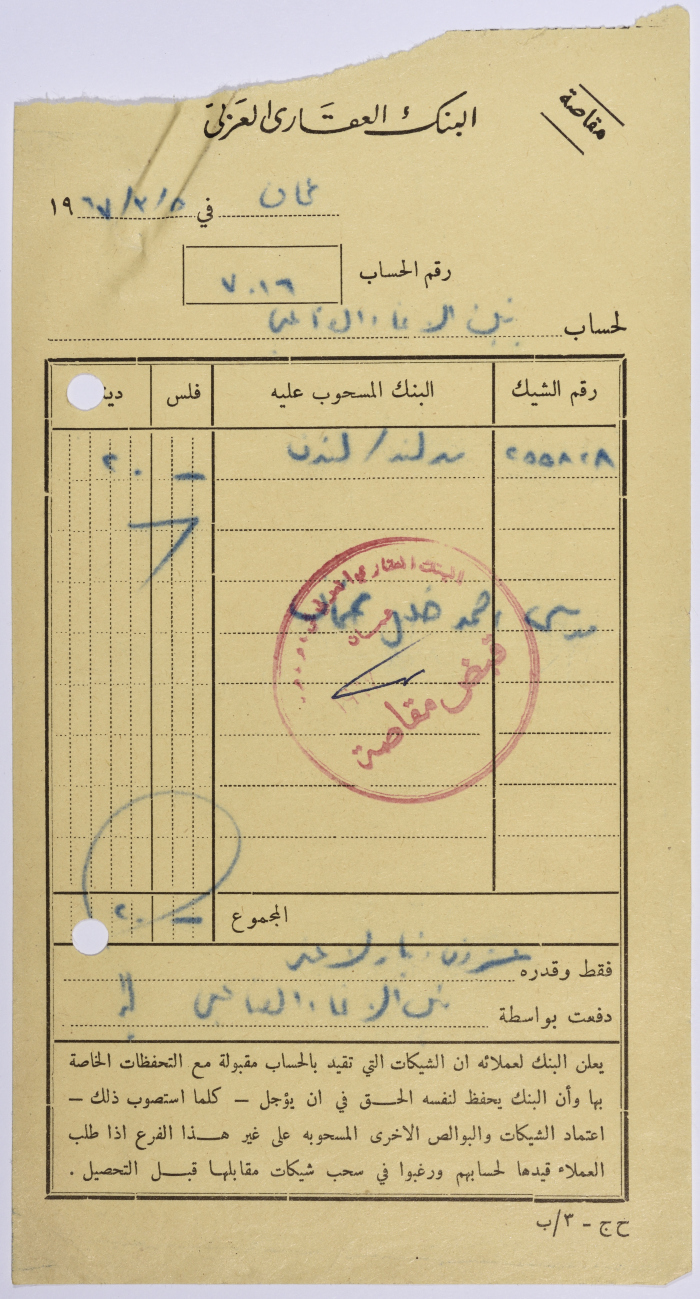 مقاصة
البنك العقاري العربي
عمان في ٥/٣/١٩٦٧
رقم الحساب ٧٠١٦
لحساب بنك الانماء الصناعي
رقم الشيك البنك المسحوب عليه فلس دينار
٢٥٥٨٢٨ مدلند/لندن — ٢٠
موسى احمد خليل
قبض مقاصة
المجموع — ٢٠
فقط وقدره عشرون دينار لا غير
دفعت بواسطة بنك الانماء الصناعي
يعلن البنك لعملائه ان الشيكات التي تقيد بالحساب مقبولة مع التحفظات الخاصة
بها وأن البنك يحفظ لنفسه الحق في ان يؤجل – كلما استصوب ذلك –
اعتماد الشيكات والبوالص الاخرى المسحوبه على غير هذا الفرع اذا طلب
العملاء قيدها لحسابهم ورغبوا في سحب شيكات مقابلها قبل التحصيل .
ح ج – ٣/ب